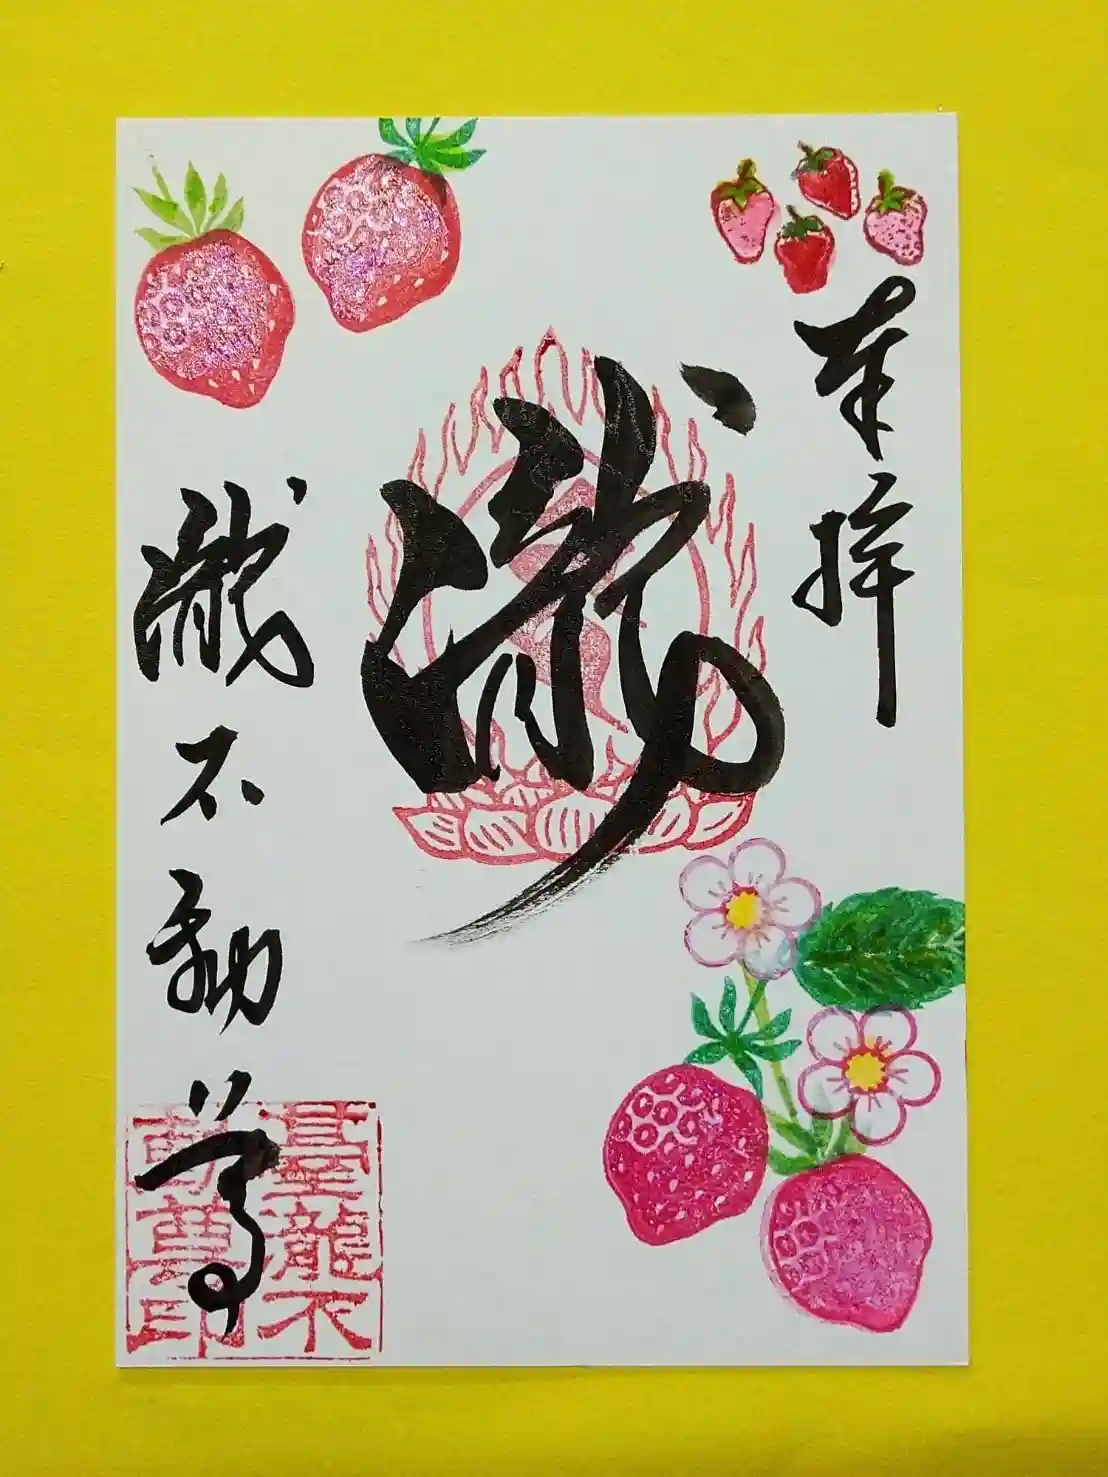 奉拝
瀧
瀧不動尊
瀧不
動尊印